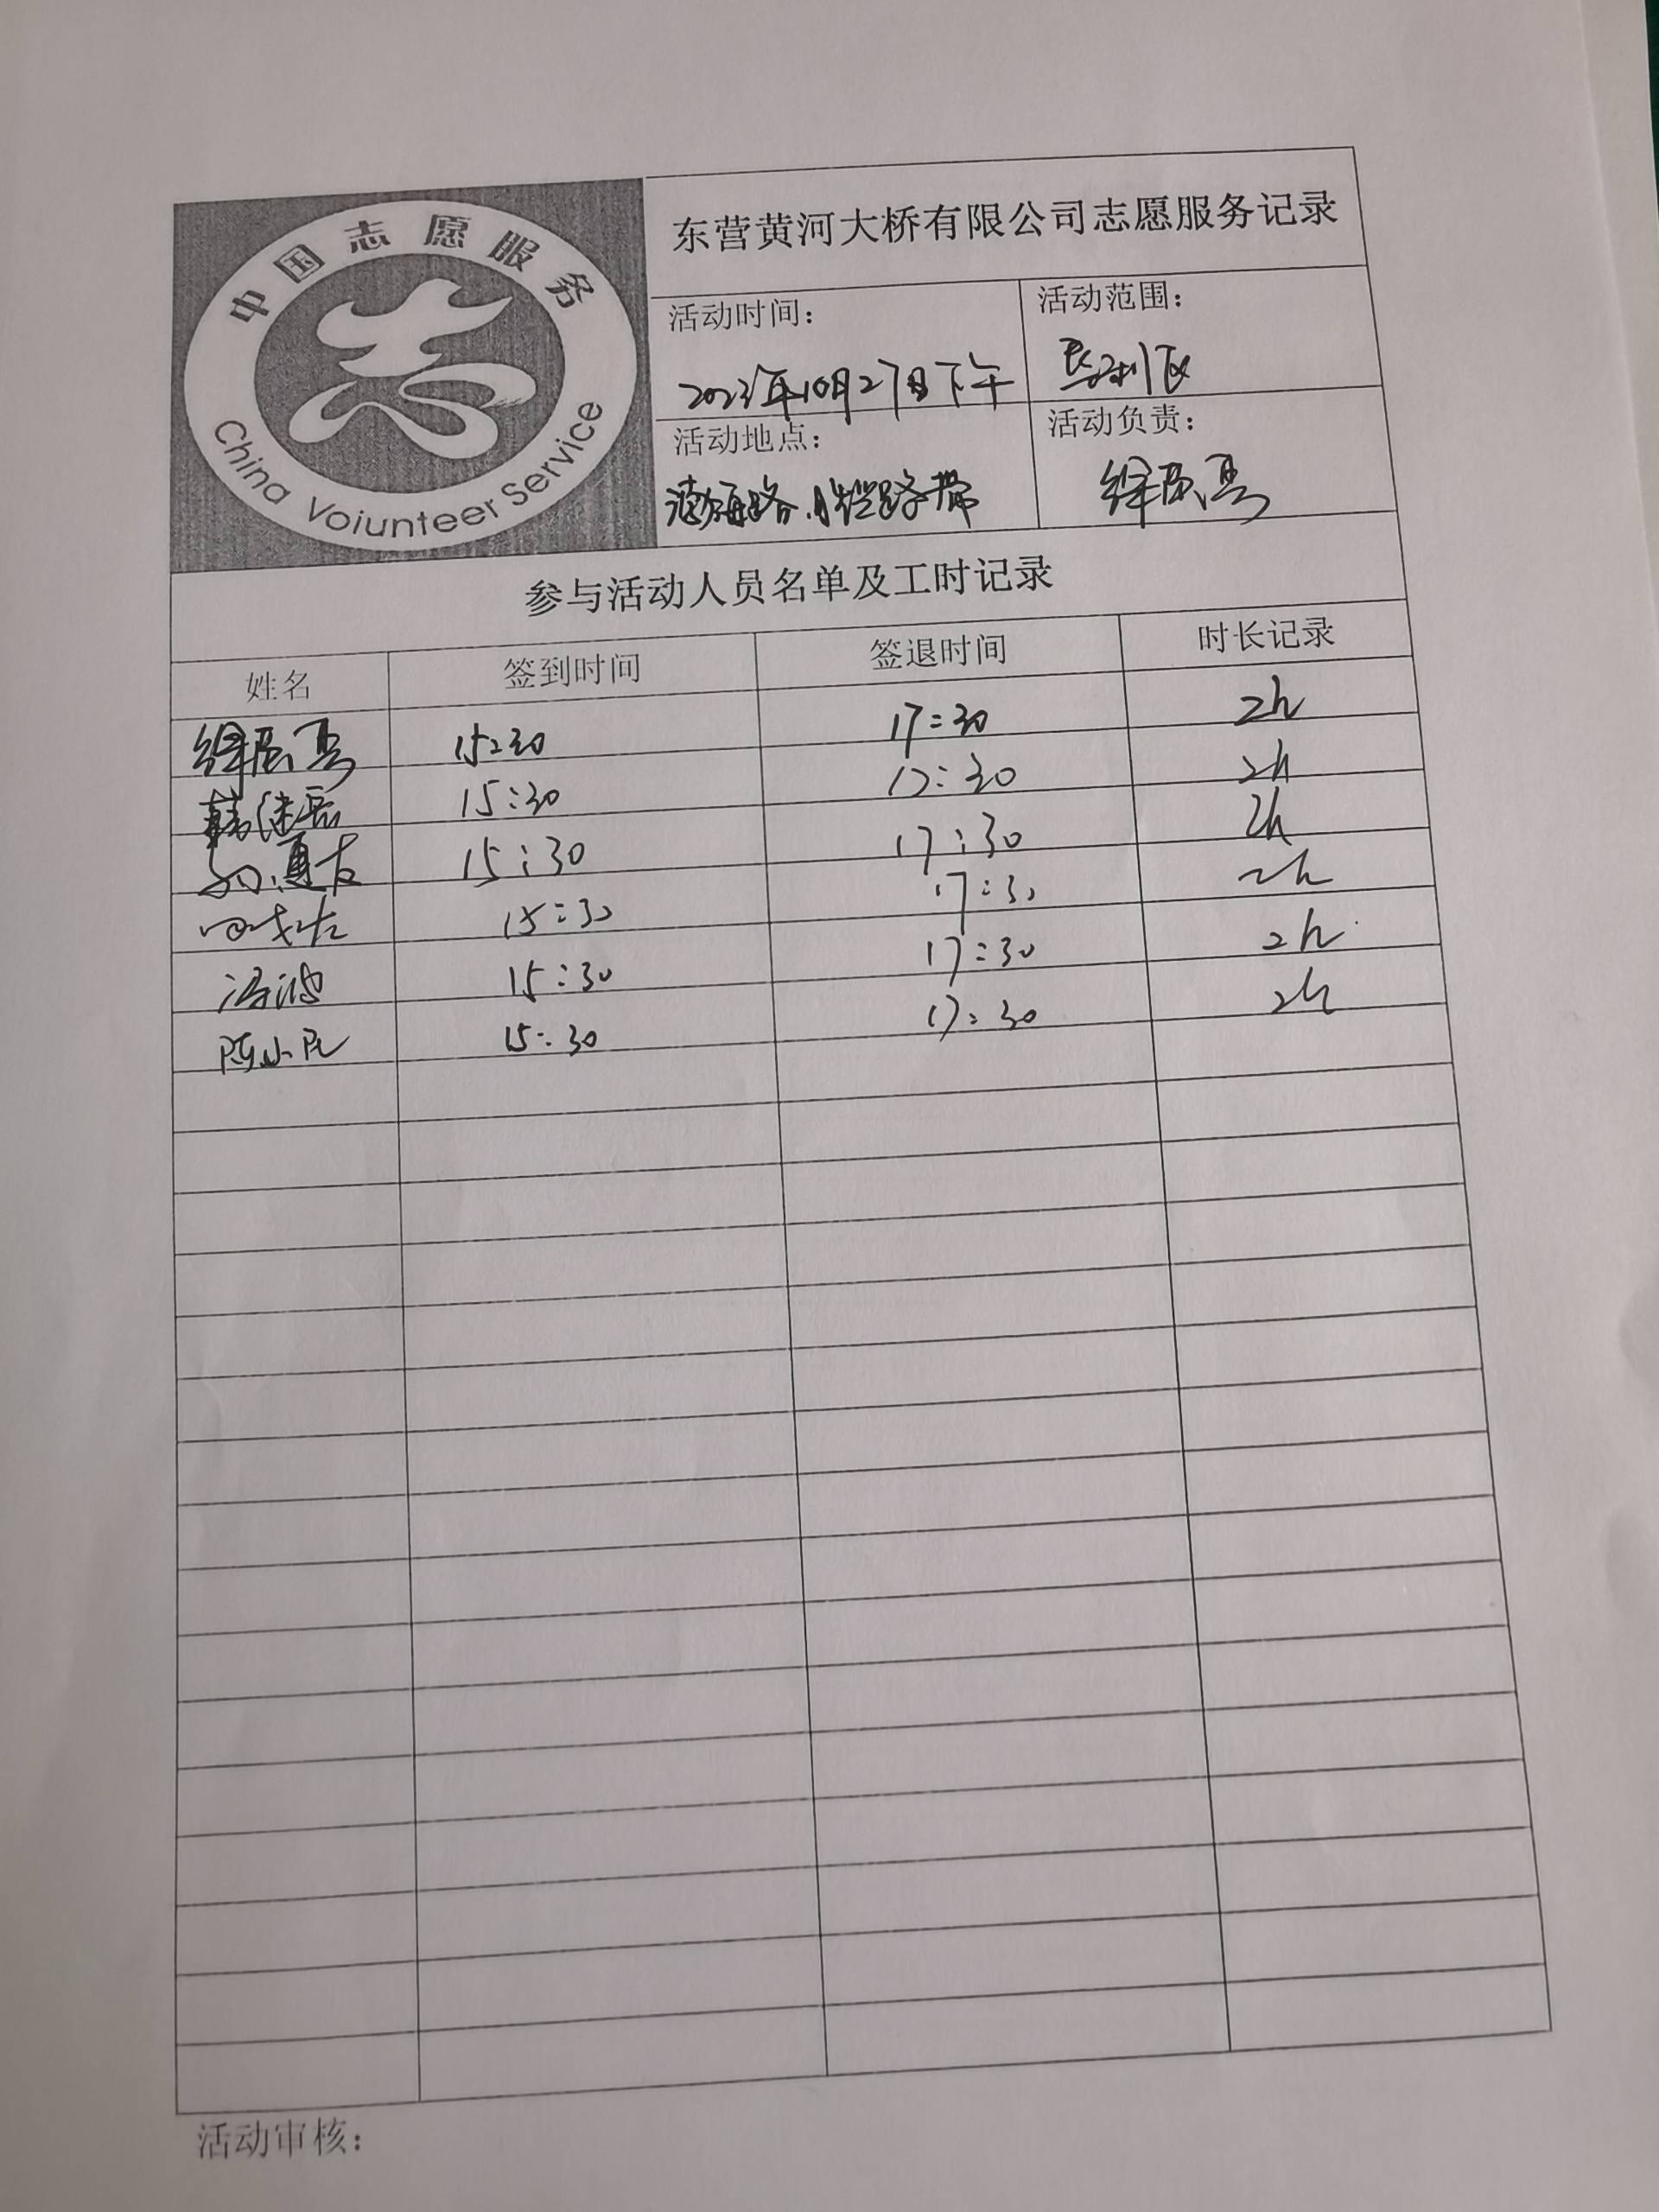 中国志愿服务
China Voiunteer Service
东营黄河大桥有限公司志愿服务记录
活动时间：
活动范围：
2023年10月27日下午
垦利区
活动地点：
活动负责：
渤海路
参与活动人员名单及工时记录
姓名 签到时间 签退时间 时长记录
15:30 17:30 2h
15:30 17:30 2h
15:30 17:30 2h
15:30 17:30 2h
冯波 15:30 17:30 2h
陈小民 15:30 17:30 2h
活动审核：